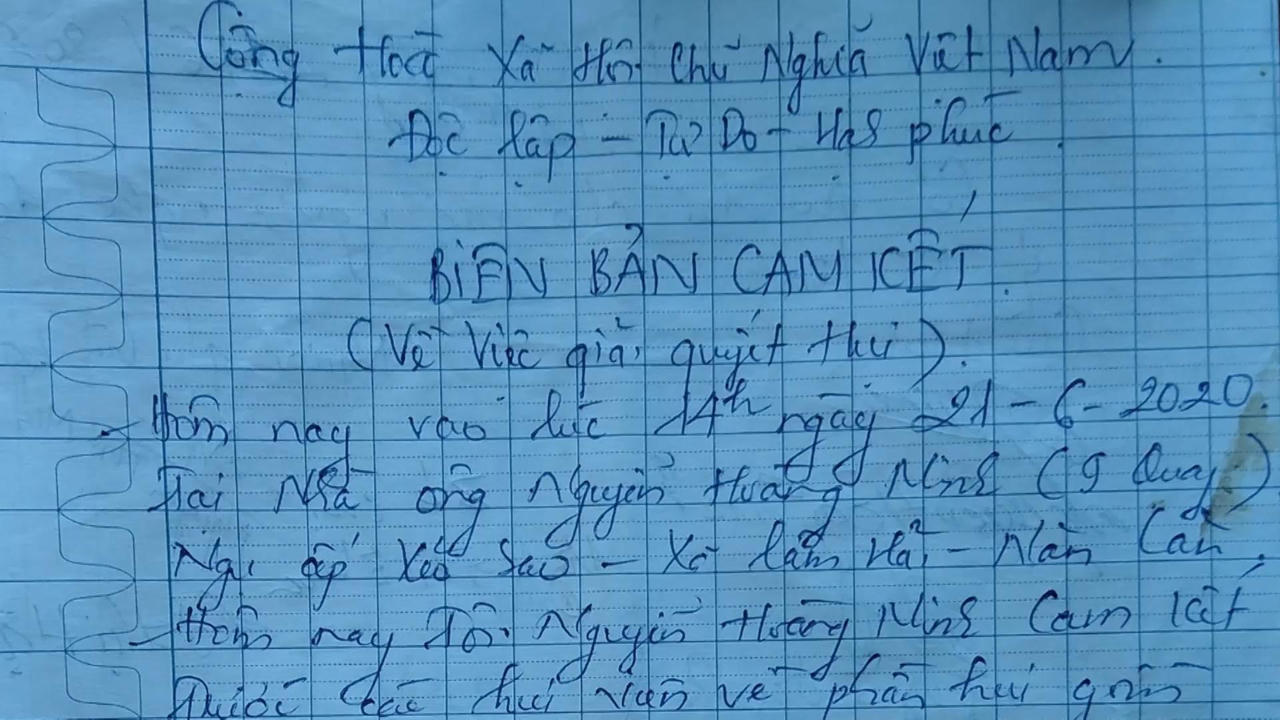 Cộng Hoà Xã Hội Chủ Nghĩa Việt Nam.
Độc lập - Tự Do - Hạnh phúc
BIÊN BẢN CAM KẾT.
(Về Việc giải quyết hụi).
- Hôm nay vào lúc 14h ngày 21-6-2020.
Tại Nhà ông Nguyễn Hoàng Ninh (9 Quay)
Ngụ ấp Xẻo Sao - Xã Hải - Năm Căn.
- Hôm nay Tôi Nguyễn Hoàng Ninh Cam kết
Trước các hụi viên về phần hụi gồm